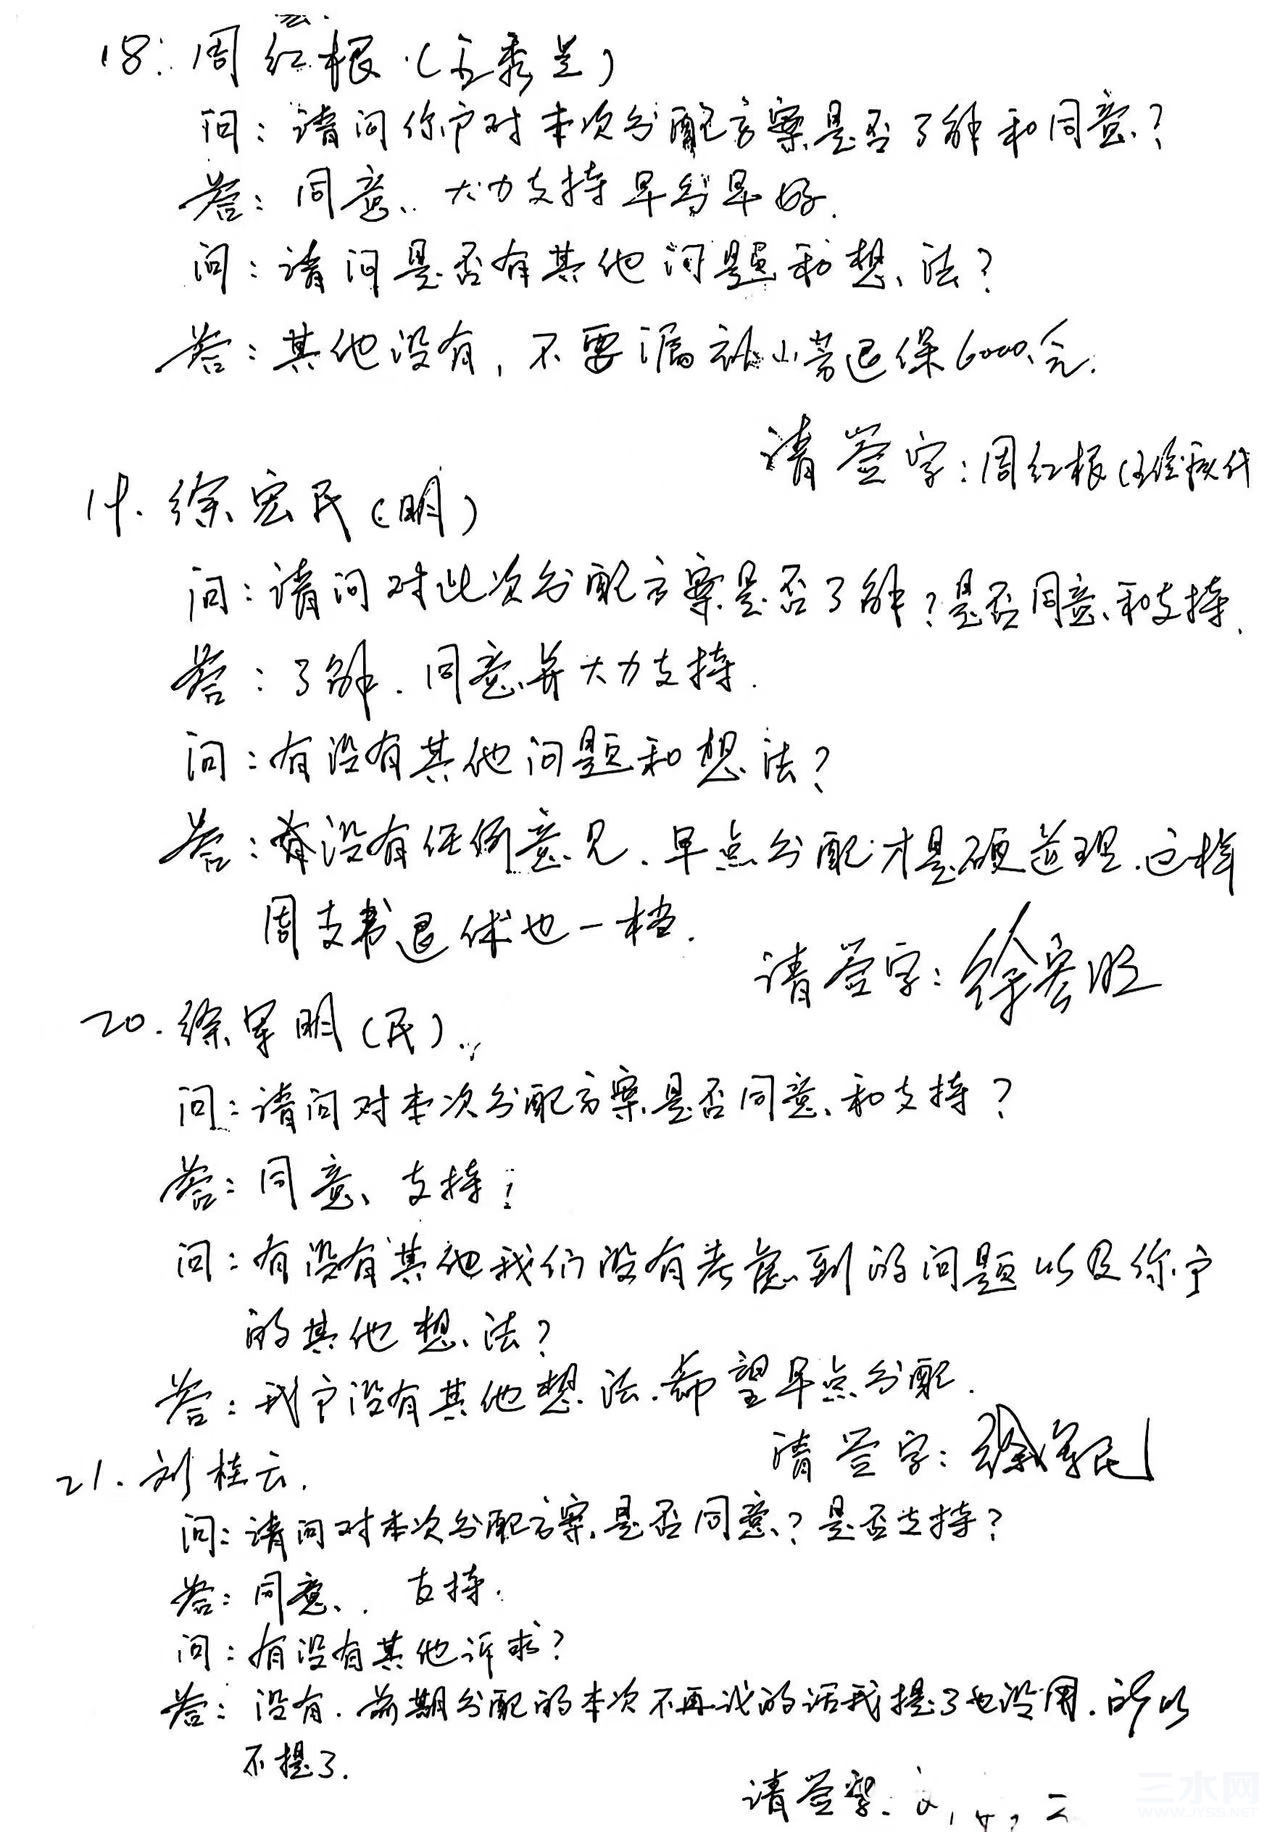 18. 周红根(王秀兰)
问：请问你户对本次分配方案是否了解和同意？
答：同意、大力支持早分早好.
问：请问是否有其他问题和想法？
答：其他没有，不要漏 退保6000元.
请签字：周红根 代
19. 徐宏民(明)
问：请问对此次分配方案是否了解？是否同意和支持.
答：了解.同意并大力支持.
问：有没有其他问题和想法？
答：没有任何意见.早点分配才是硬道理.这样
周支书退休也一档.
请签字：徐宏明
20. 徐军明(民).
问：请问对本次分配方案是否同意和支持？
答：同意、支持！
问：有没有其他我们没有考虑到的问题以及你户
的其他想法？
答：我户没有其他想法.希望早点分配.
请签字：徐军民
21. 刘桂云.
问：请问对本次分配方案是否同意？是否支持？
答：同意.支持.
问：有没有其他诉求？
答：没有.前期分配的本次不再说的话我提了也没用.所以
不提了.
请签字：
三水网
WWW.JYSS.NET